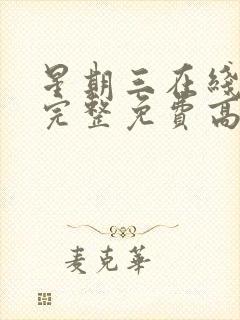 星期三在线
完整免费高
麦克华